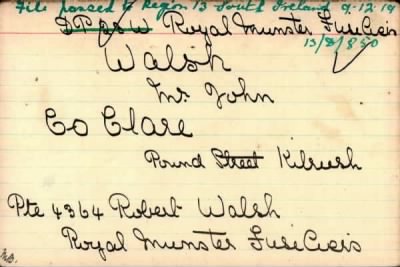 File passed to Region 13 South Ireland 9.12.19
DP & W Royal Munster Fusiliers
13/8/850
Walsh
Mr John
Co Clare
Pound Street Kilrush
Pte 4364 Robert Walsh
Royal Munster Fusiliers